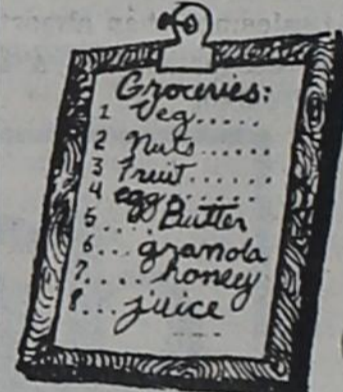 Groceries:
1 Veg.....
2 Nuts......
3 Fruit......
4 egg......
5 .... Butter
6 ... granola
7..... honey
8... juice
....